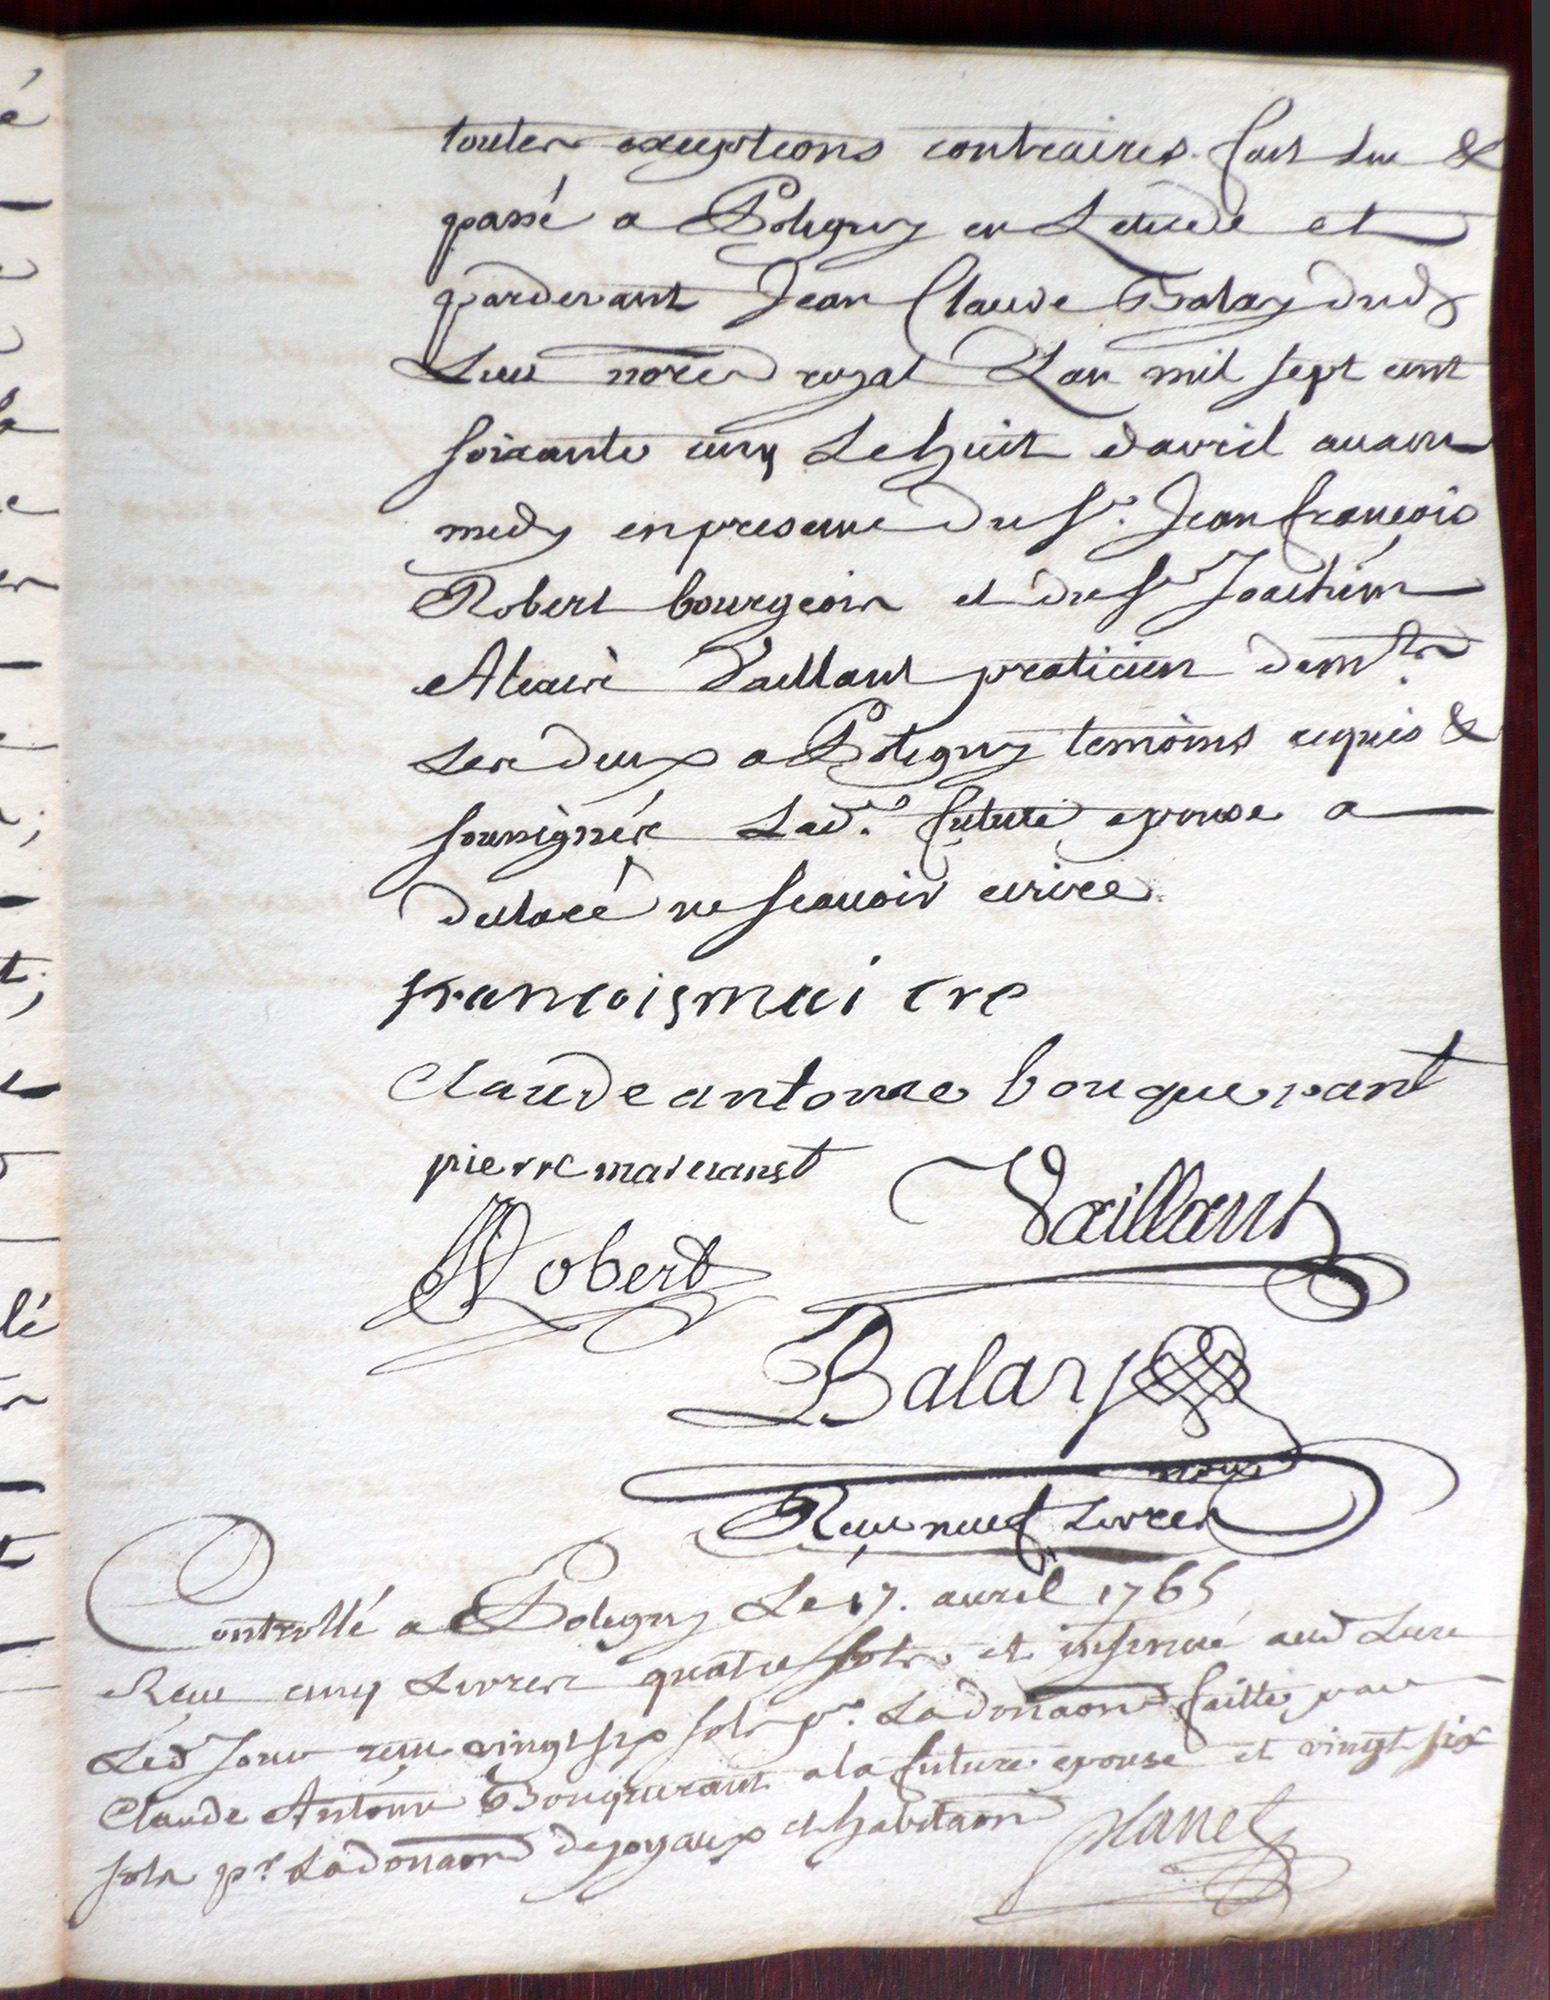 toutes exceptions contraires. fait Lu &
passé a Poligny en Letude et
pardevant Jean Claude Balay dud
Lieu nore royal Lan mil sept cent
soixante cinq Le huit davril avant
midy en presence du Sr. Jean françois
Robert bourgeois et du Sr Joachim
Alexis Vaillant praticien demts.
Les deux a Poligny temoins requis &
soussignés Lad. future epouse a
declaré ne scavoir ecrire
francoismai tre
Claude antoine bouquerant
pierre marchanst
Vaillant
Robert
Balay
nore
Reçu neuf Livres
Controllé a Poligny Le 17. avril 1765
Reçu cinq Livres quatre sols et insinué aud Lieu
Led Jour reçu vingt six sols pr. La donaon faitte par
Claude Antoine Bouquerant a la future epouse et vingt six
sols pr. La donaon de joyaux et habitaon